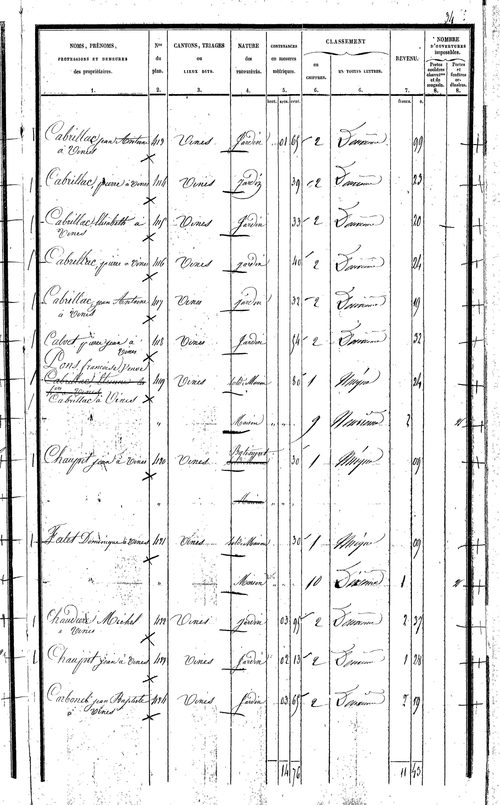 24
NOMS, PRÉNOMS, PROFESSIONS ET DEMEURES des propriétaires. 1. | Nos du plan. 2. | CANTONS, TRIAGES ou LIEUX DITS. 3. | NATURE des 4. | CONTENANCES en mesures métriques. 5. | CLASSEMENT en CHIFFRES. 6. | EN TOUTES LETTRES. 6. | REVENU. 7. | NOMBRE D'OUVERTURES imposables. Portes et de magasin. 8. | Portes et fenêtres ordinaires. 8.
hect. ares. cent. francs. c.
Cabrillac, jean Antoine 413 Vines Jardin 01 65 2 Deuxième 99
à Vines
Cabrillac, pierre à Vines 414 Vines jardin 39 2 Deuxième 23
Cabrillac, Elisabeth à 415 Vines Jardin 33 2 Deuxième 20
Vines
Cabrillac, pierre à Vines 416 Vines jardin 40 2 Deuxième 24
Cabrillac, jean Antoine 417 Vines jardin 32 2 Deuxième 19
à Vines
Calvet pierre jean à 418 Vines Jardin 54 2 Deuxième 32
Vines
Pons françoise Veuve
Cabrillac 419 Vines Sol de Maison 80 1 24
Cabrillac à Vines
" " Maison 9 2
Chauprit jean à Vines 420 Vines 30 1 09
" Maison
Falet Dominique à Vines 421 Vines Sol de Maison 30 1 09
" " Maison 10 Dixième 1
Michel 422 Vines jardin 03 95 2 Deuxième 2 37
à Vines
Chauprit jean à Vines 423 Vines Jardin 02 13 2 Deuxième 1 28
Carbonel jean Baptiste 424 Vines Jardin 03 65 2 Deuxième 2 19
à Vines
14 76 11 43